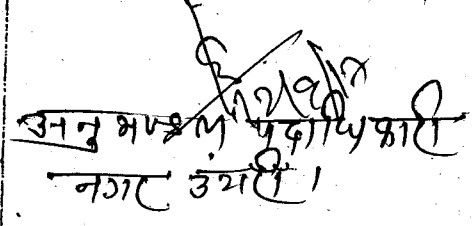 अनुमण्डल पदाधिकारी
नगर उंटारी।